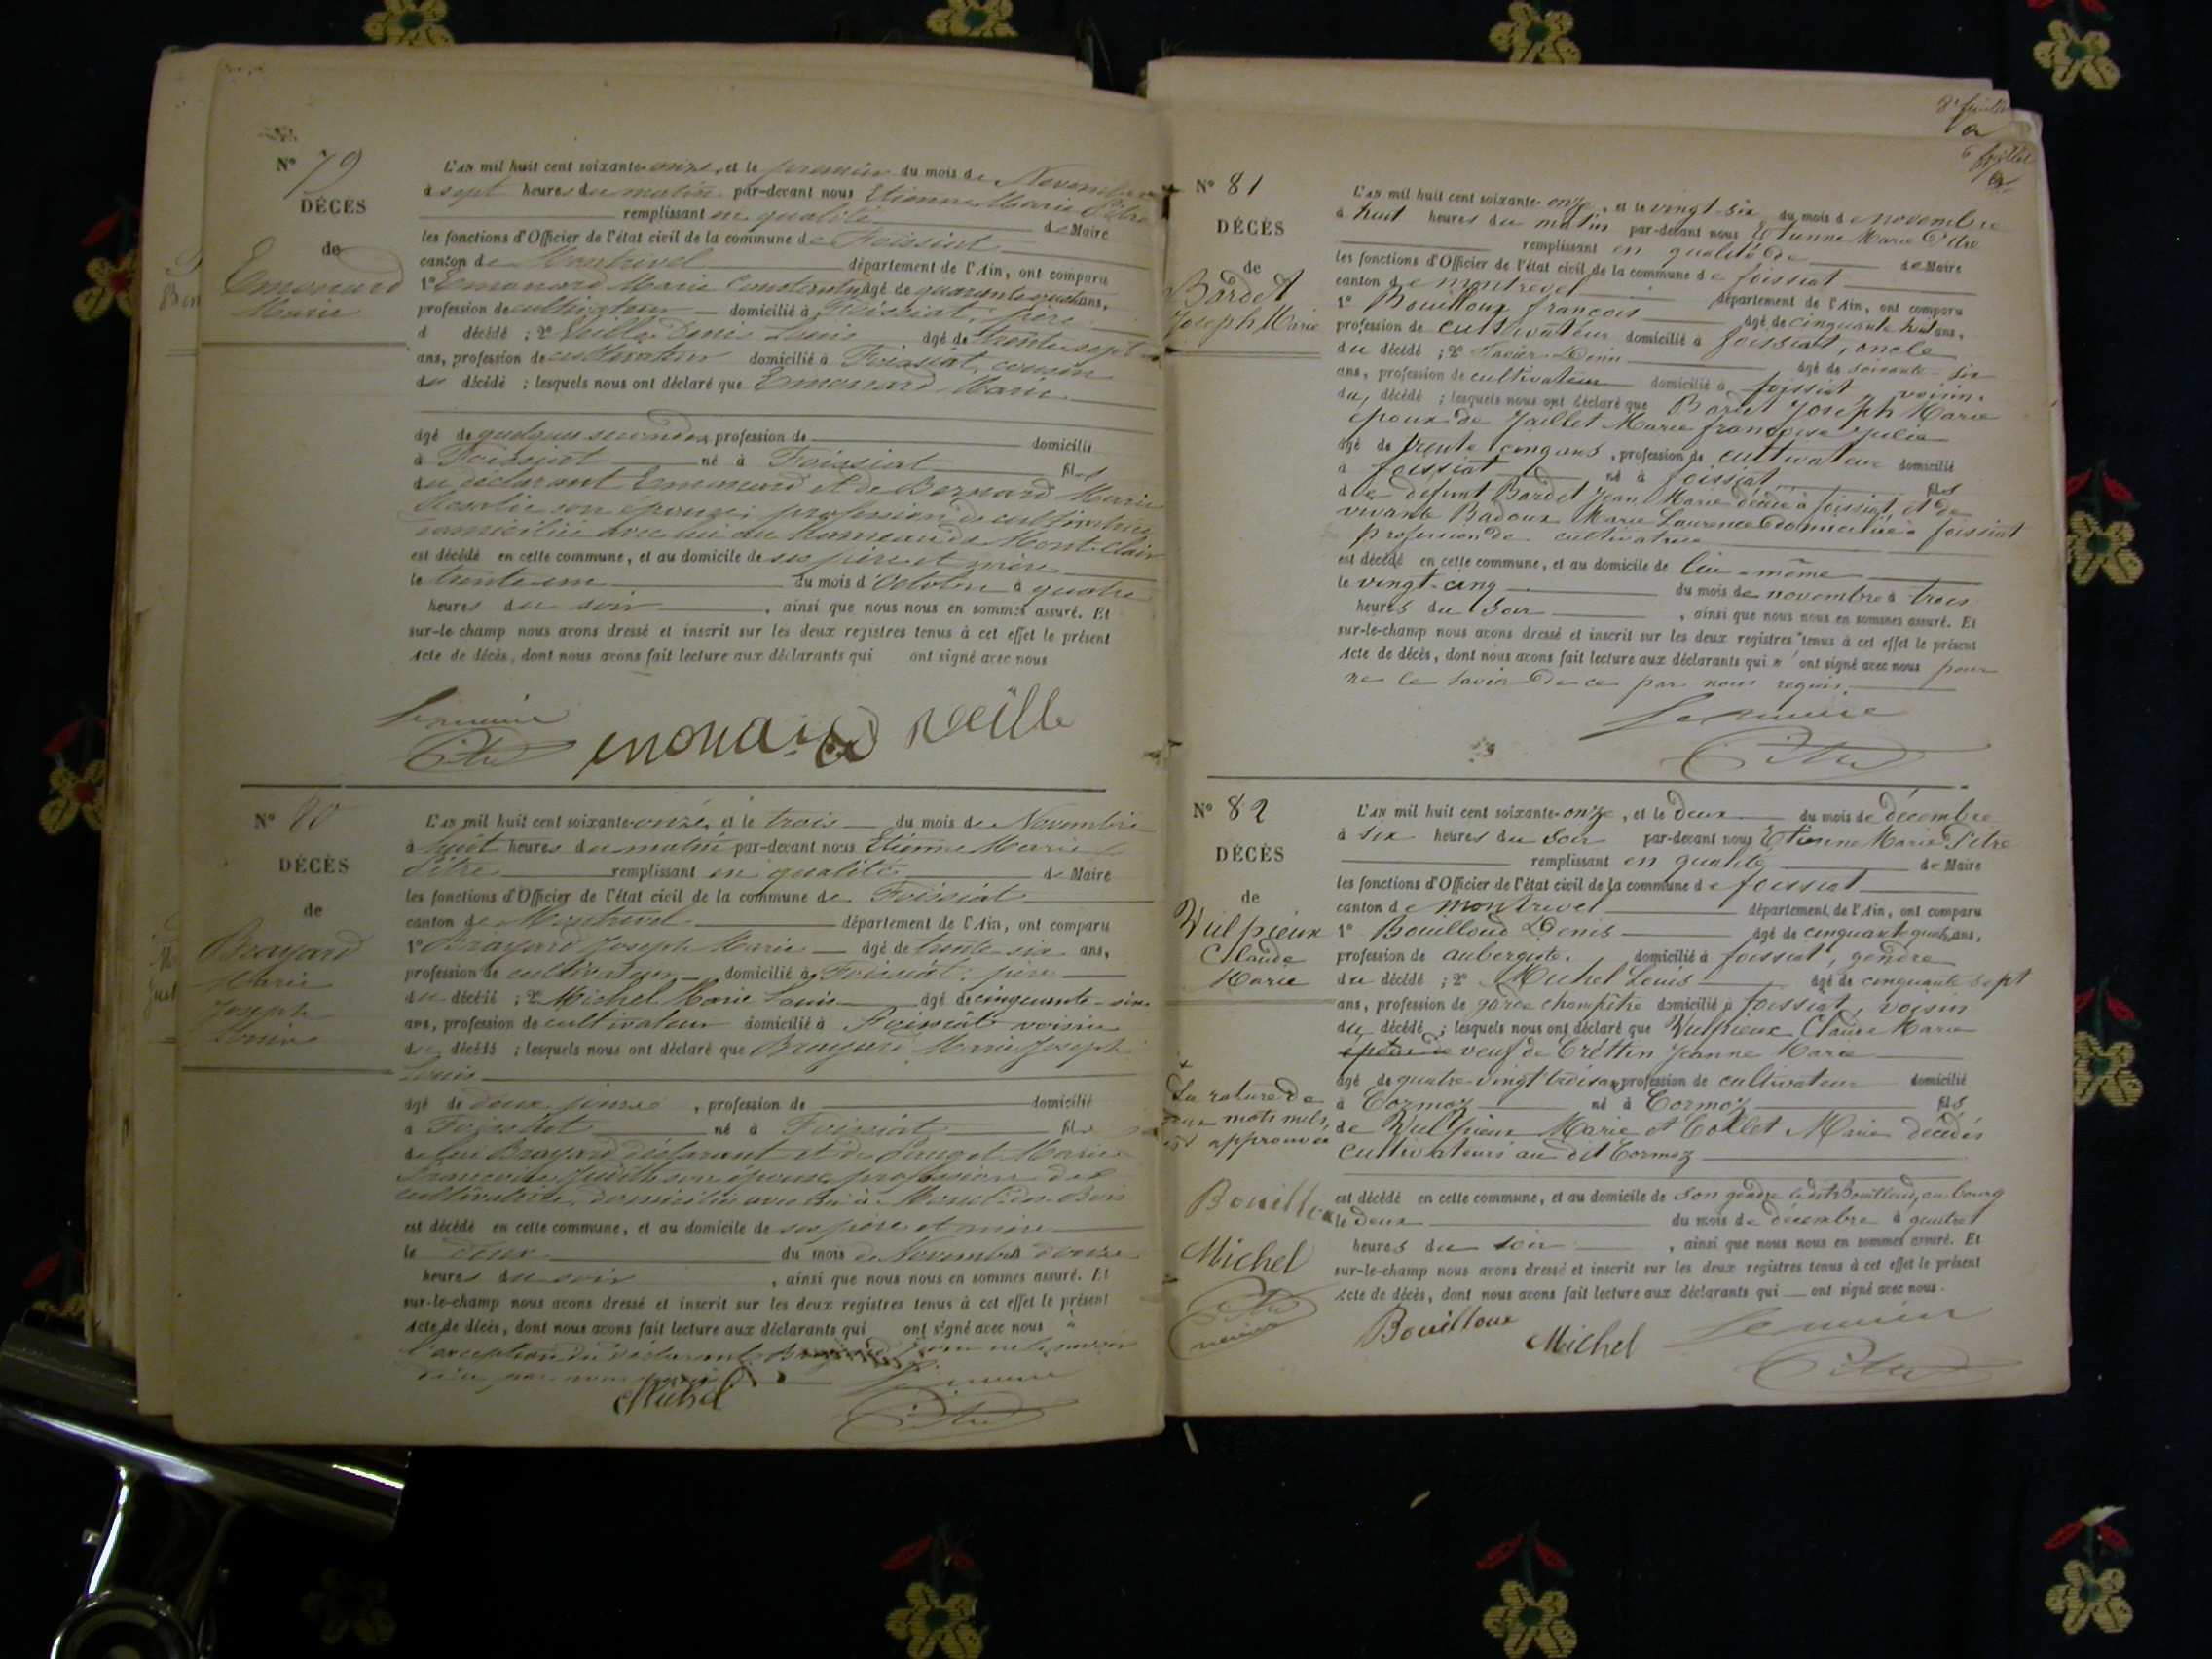 N° 79
DÉCÈS
de
Emonard
Marie
L'AN mil huit cent soixante-onze, et le premier du mois de Novembre
à sept heures du matin par-devant nous Etienne Marie Pitre
remplissant en qualité de Maire
les fonctions d'Officier de l'état civil de la commune de Foissiat
canton de Montrevel département de l'Ain, ont comparu
1° Emonard Marie Constant âgé de quarante ans,
profession de cultivateur domicilié à Foissiat, père
d décédé ; 2° Denis Louis âgé de trente sept
ans, profession de cultivateur domicilié à Foissiat, cousin
du décédé ; lesquels nous ont déclaré que Emonard Marie
âgé de quelques secondes, profession de domicilié
à Foissiat né à Foissiat fils
du déclarant Emonard et de Bernard Marie
Rosalie son épouse, profession de cultivatrice
domiciliée avec lui au hameau de Mont-Clair
est décédé en cette commune, et au domicile de ses père et mère
le trente un du mois d'Octobre à quatre
heures du soir, ainsi que nous nous en sommes assuré. Et
sur-le-champ nous avons dressé et inscrit sur les deux registres tenus à cet effet le présent
Acte de décès, dont nous avons fait lecture aux déclarants qui ont signé avec nous
Le maire
Pitre emonard
N° 80
DÉCÈS
de
Brayard
Marie
Joseph
Louis
L'AN mil huit cent soixante-onze, et le trois du mois de Novembre
à huit heures du matin par-devant nous Etienne Marie
Pitre remplissant en qualité de Maire
les fonctions d'Officier de l'état civil de la commune de Foissiat
canton de Montrevel département de l'Ain, ont comparu
1° Brayard Joseph Marie âgé de trente six ans,
profession de cultivateur domicilié à Foissiat, père
du décédé ; 2° Michel Marie Louis âgé de cinquante-six
ans, profession de cultivateur domicilié à Foissiat voisin
du décédé ; lesquels nous ont déclaré que Brayard Marie Joseph
Louis
âgé de deux jours, profession de domicilié
à Foissiat né à Foissiat fils
Brayard déclarant et de Marie
Françoise Judith son épouse, profession de
cultivatrice, domiciliée avec lui à
est décédé en cette commune, et au domicile de ses père et mère
le deux du mois de Novembre à
heures du soir, ainsi que nous nous en sommes assuré. Et
sur-le-champ nous avons dressé et inscrit sur les deux registres tenus à cet effet le présent
Acte de décès, dont nous avons fait lecture aux déclarants qui ont signé avec nous à
l'exception du déclarant pour ne le savoir
de ce par nous
Michel Le maire
Pitre
N° 81
DÉCÈS
de
Bardet
Joseph Marie
L'AN mil huit cent soixante-onze, et le vingt-six du mois de novembre
à huit heures du matin par-devant nous Etienne Marie Pitre
remplissant en qualité de de Maire
les fonctions d'Officier de l'état civil de la commune de foissiat
canton de montrevel département de l'Ain, ont comparu
1° Bouilloux françois âgé de cinquante huit ans,
profession de cultivateur domicilié à foissiat, oncle
du décédé ; 2° Denis âgé de soixante-six
ans, profession de cultivateur domicilié à foissiat, voisin
du décédé ; lesquels nous ont déclaré que Bardet Joseph Marie
époux de Jaillet Marie françoise Julie
âgé de trente cinq ans, profession de cultivateur domicilié
à foissiat né à foissiat fils
de defunt Bardet Jean Marie décédé à foissiat, et de
vivante Badoux Marie Laurence domiciliée à foissiat
profession de cultivatrice
est décédé en cette commune, et au domicile de lui-même
le vingt-cinq du mois de novembre à trois
heures du soir, ainsi que nous nous en sommes assuré. Et
sur-le-champ nous avons dressé et inscrit sur les deux registres tenus à cet effet le présent
Acte de décès, dont nous avons fait lecture aux déclarants qui n'ont signé avec nous pour
ne le savoir de ce par nous requis.
Le maire
Pitre
N° 82
DÉCÈS
de
Vulpieux
Claude
Marie
L'AN mil huit cent soixante-onze, et le deux du mois de décembre
à six heures du soir par-devant nous Etienne Marie Pitre
remplissant en qualité de Maire
les fonctions d'Officier de l'état civil de la commune de foissiat
canton de montrevel département de l'Ain, ont comparu
1° Bouilloud Denis âgé de cinquante quatre ans,
profession de aubergiste, domicilié à foissiat, gendre
du décédé ; 2° Michel Louis âgé de cinquante sept
ans, profession de garde champêtre domicilié à foissiat, voisin
du décédé ; lesquels nous ont déclaré que Vulpieux Claude Marie
époux de veuf de Crétin Jeanne Marie
âgé de quatre-vingt trois ans, profession de cultivateur domicilié
à Cormoz né à Cormoz fils
de Vulpieux Marie et Collet Marie décédés
cultivateurs au dit Cormoz
est décédé en cette commune, et au domicile de son gendre ledit Bouilloud, au bourg
le deux du mois de décembre à quatre
heures du soir, ainsi que nous nous en sommes assuré. Et
sur-le-champ nous avons dressé et inscrit sur les deux registres tenus à cet effet le présent
Acte de décès, dont nous avons fait lecture aux déclarants qui ont signé avec nous.
La rature de
deux mots nuls
est approuvée
Bouilloux
Michel
Pitre
maire
Bouilloux Michel Le maire
Pitre